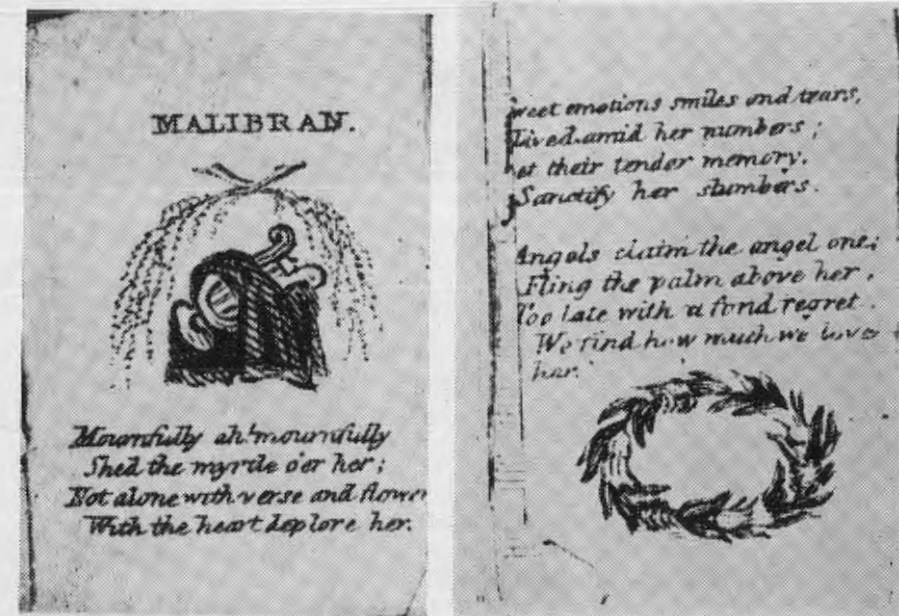 MALIBRAN.
Mournfully ah! mournfully
Shed the myrtle o'er her;
Not alone with verse and flower
With the heart deplore her.
weet emotions smiles and tears,
Lived amid her numbers;
et their tender memory.
Sanctify her slumbers.
Angels claim the angel one;
Fling the palm above her,
Too late with a fond regret.
We find how much we love
her.